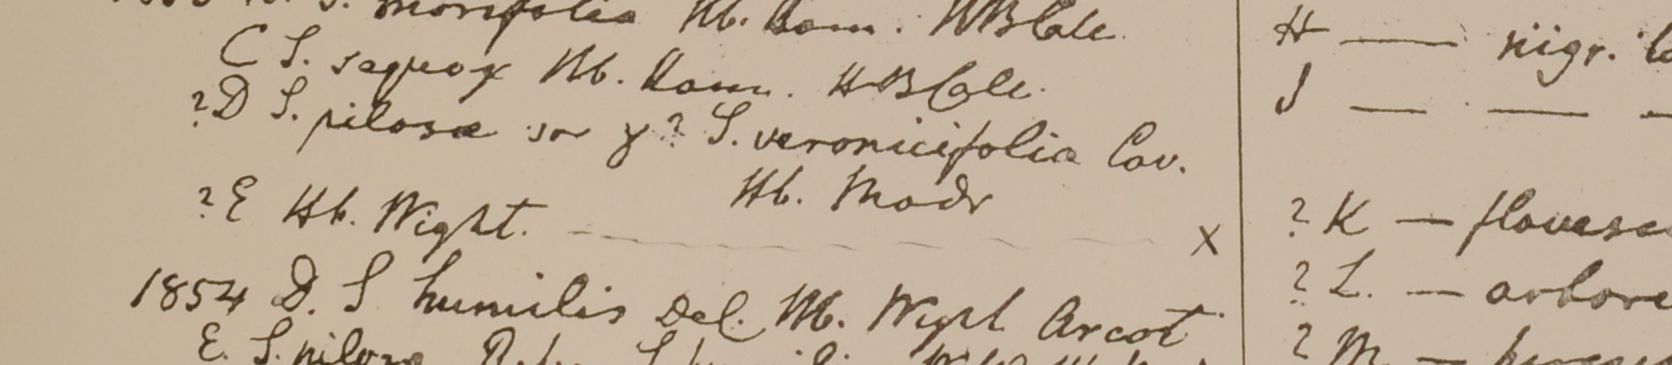 S. morifolia Hb. Ham. HBCalc.
C S. Hb. Ham. HBCalc.
?D S. pilosa sor γ? S. veronicifolia Cav.
Hb. Madr
?E Hb. Wight. x
1854 D. S humilis Del. Hb. Wight Arcot
E. S. pilosa
H — nigr.
J — —
? K — flavesc
? L. — arbore
? M —